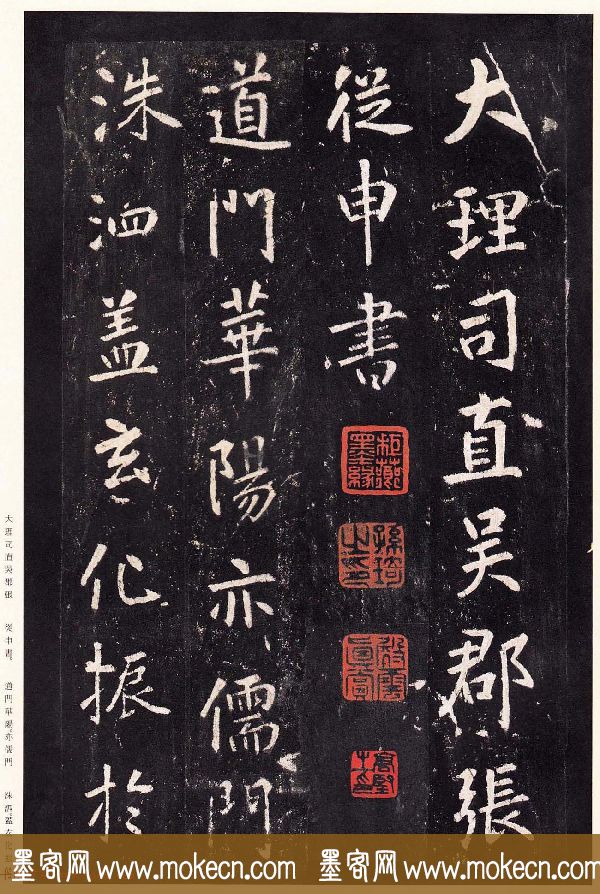 大理司直吳郡張
從申書
道門華陽亦儒門
洙泗蓋玄化振於
大理司直吳郡張 從申書。 道門華陽。亦儒門
墨客网 www.mokecn.com 墨客网 www.mokecn.com